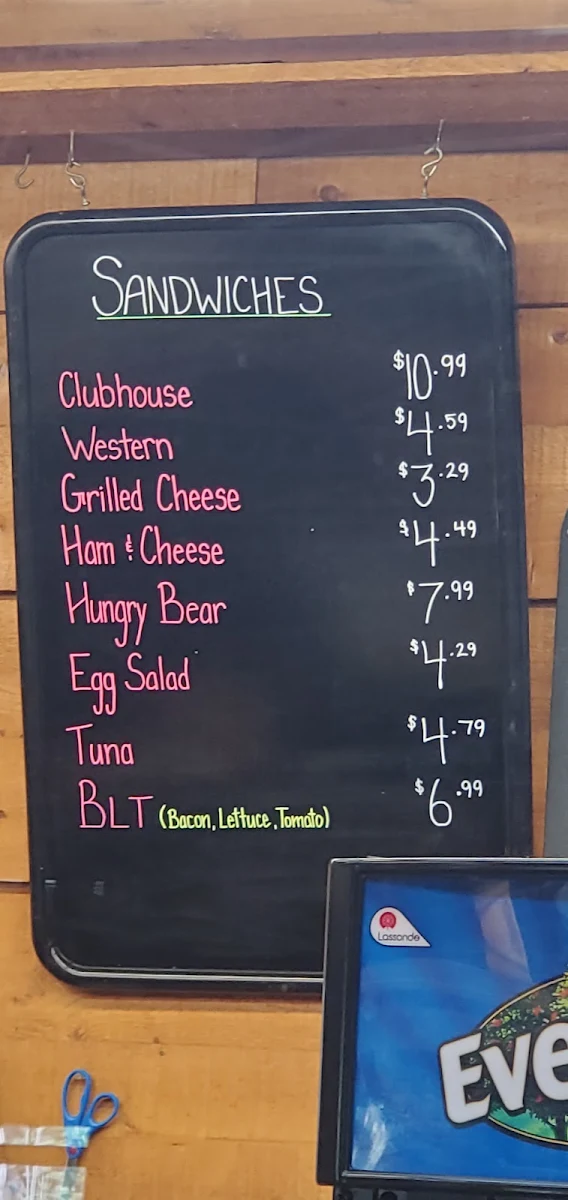 SANDWICHES
Clubhouse $10.99
Western $4.59
Grilled Cheese $3.29
Ham & Cheese $4.49
Hungry Bear $7.99
Egg Salad $4.29
Tuna $4.79
BLT (Bacon, Lettuce, Tomato) $6.99
Lassonde
Eve